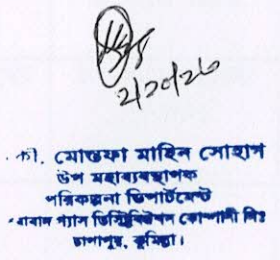 ২/১০/২৩
মোস্তফা মাহিন সোহাগ
উপ মহাব্যবস্থাপক
পরিকল্পনা ডিপার্টমেন্ট
গ্যাস ডিস্ট্রিবিউশন কোম্পানী লিঃ
চাপাপুর, কুমিল্লা।